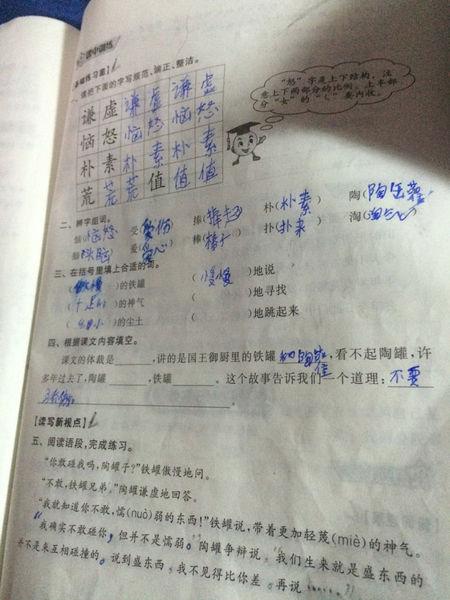 读中训练
基础练习童】
一、请把下面的字写规范、端正、整洁。
"怒"字是上下结构，注
意上下两部分的比例，上半部
分"女"的"乚"要内收。
谦 虚 谦 虚 谦 虚
恼 怒 恼 怒 恼 怒
朴 素 朴 素 朴 素
荒 荒 荒 值 值 值
二、辨字组词。
恼(恼怒) 受(受伤) 捧(捧起) 朴(朴素) 陶(陶罐)
脑(头脑) 爱(爱心) 棒(棒子) 扑(扑来) 淘(淘气)
三、在括号里填上合适的词。
(傲慢)的铁罐 (慢慢)地说
( )的神气 ( )地寻找
( )的尘土 ( )地跳起来
四、根据课文内容填空。
课文的体裁是____,讲的是国王御厨里的铁罐____,看不起陶罐,许
多年过去了,陶罐____,铁罐____。这个故事告诉我们一个道理:不要
____。
【读写新视点】
五、阅读语段,完成练习。
"你敢碰我吗,陶罐子?"铁罐傲慢地问。
"不敢,铁罐兄弟。"陶罐谦虚地回答。
"我就知道你不敢,懦(nuò)弱的东西!"铁罐说,带着更加轻蔑(miè)的神气。
"我确实不敢碰你,但并不是懦弱。陶罐争辩说,我们生来就是盛东西的
并不是来互相碰撞的。说到盛东西,我不见得比你差。再说……"